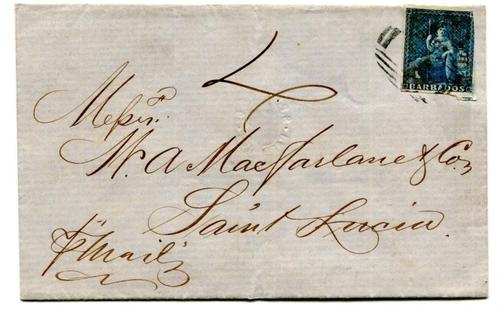 BARBADOS
4
Messrs.
W. A MacFarlane & Co,
Saint Lucia.
"p Mail"